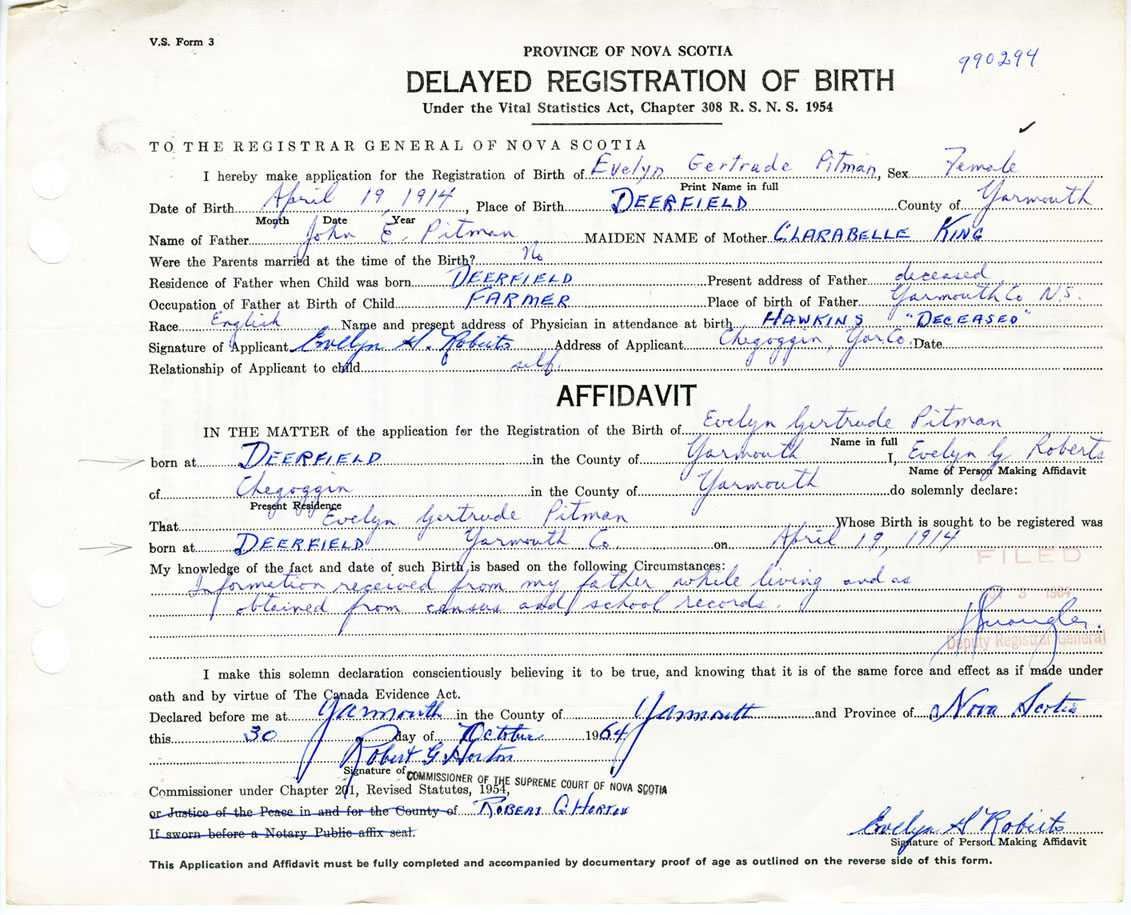 V.S. Form 3
PROVINCE OF NOVA SCOTIA
990294
DELAYED REGISTRATION OF BIRTH
Under the Vital Statistics Act, Chapter 308 R. S. N. S. 1954
TO THE REGISTRAR GENERAL OF NOVA SCOTIA
I hereby make application for the Registration of Birth of Evelyn Gertrude Pitman, Sex Female
Print Name in full
Date of Birth April 19, 1914, Place of Birth DEERFIELD County of Yarmouth
Month Date Year
Name of Father John E. Pitman MAIDEN NAME of Mother CLARABELLE KING
Were the Parents married at the time of the Birth? No
Residence of Father when Child was born DEERFIELD Present address of Father deceased
Occupation of Father at Birth of Child FARMER Place of birth of Father Yarmouth Co N.S.
Race English Name and present address of Physician in attendance at birth HAWKINS "DECEASED"
Signature of Applicant Evelyn G. Roberts Address of Applicant Chegoggin, Yar Co. Date
Relationship of Applicant to child self.
AFFIDAVIT
IN THE MATTER of the application for the Registration of the Birth of Evelyn Gertrude Pitman
Name in full
born at DEERFIELD in the County of Yarmouth I, Evelyn G Roberts
Name of Person Making Affidavit
of Chegoggin in the County of Yarmouth do solemnly declare:
Present Residence
That Evelyn Gertrude Pitman Whose Birth is sought to be registered was
born at DEERFIELD Yarmouth Co. on April 19, 1914
FILED
My knowledge of the fact and date of such Birth is based on the following Circumstances:
Information received from my father while living and as
obtained from census and school records.
3 1964
Deputy Registrar General
I make this solemn declaration conscientiously believing it to be true, and knowing that it is of the same force and effect as if made under
oath and by virtue of The Canada Evidence Act.
Declared before me at Yarmouth in the County of Yarmouth and Province of Nova Scotia
this 30 day of October 1964
Robert G Horton
Signature of COMMISSIONER OF THE SUPREME COURT OF NOVA SCOTIA
Commissioner under Chapter 201, Revised Statutes, 1954,
or Justice of the Peace in and for the County of ROBERT G HORTON
If sworn before a Notary Public affix seal.
Evelyn G Roberts
Signature of Person Making Affidavit
This Application and Affidavit must be fully completed and accompanied by documentary proof of age as outlined on the reverse side of this form.